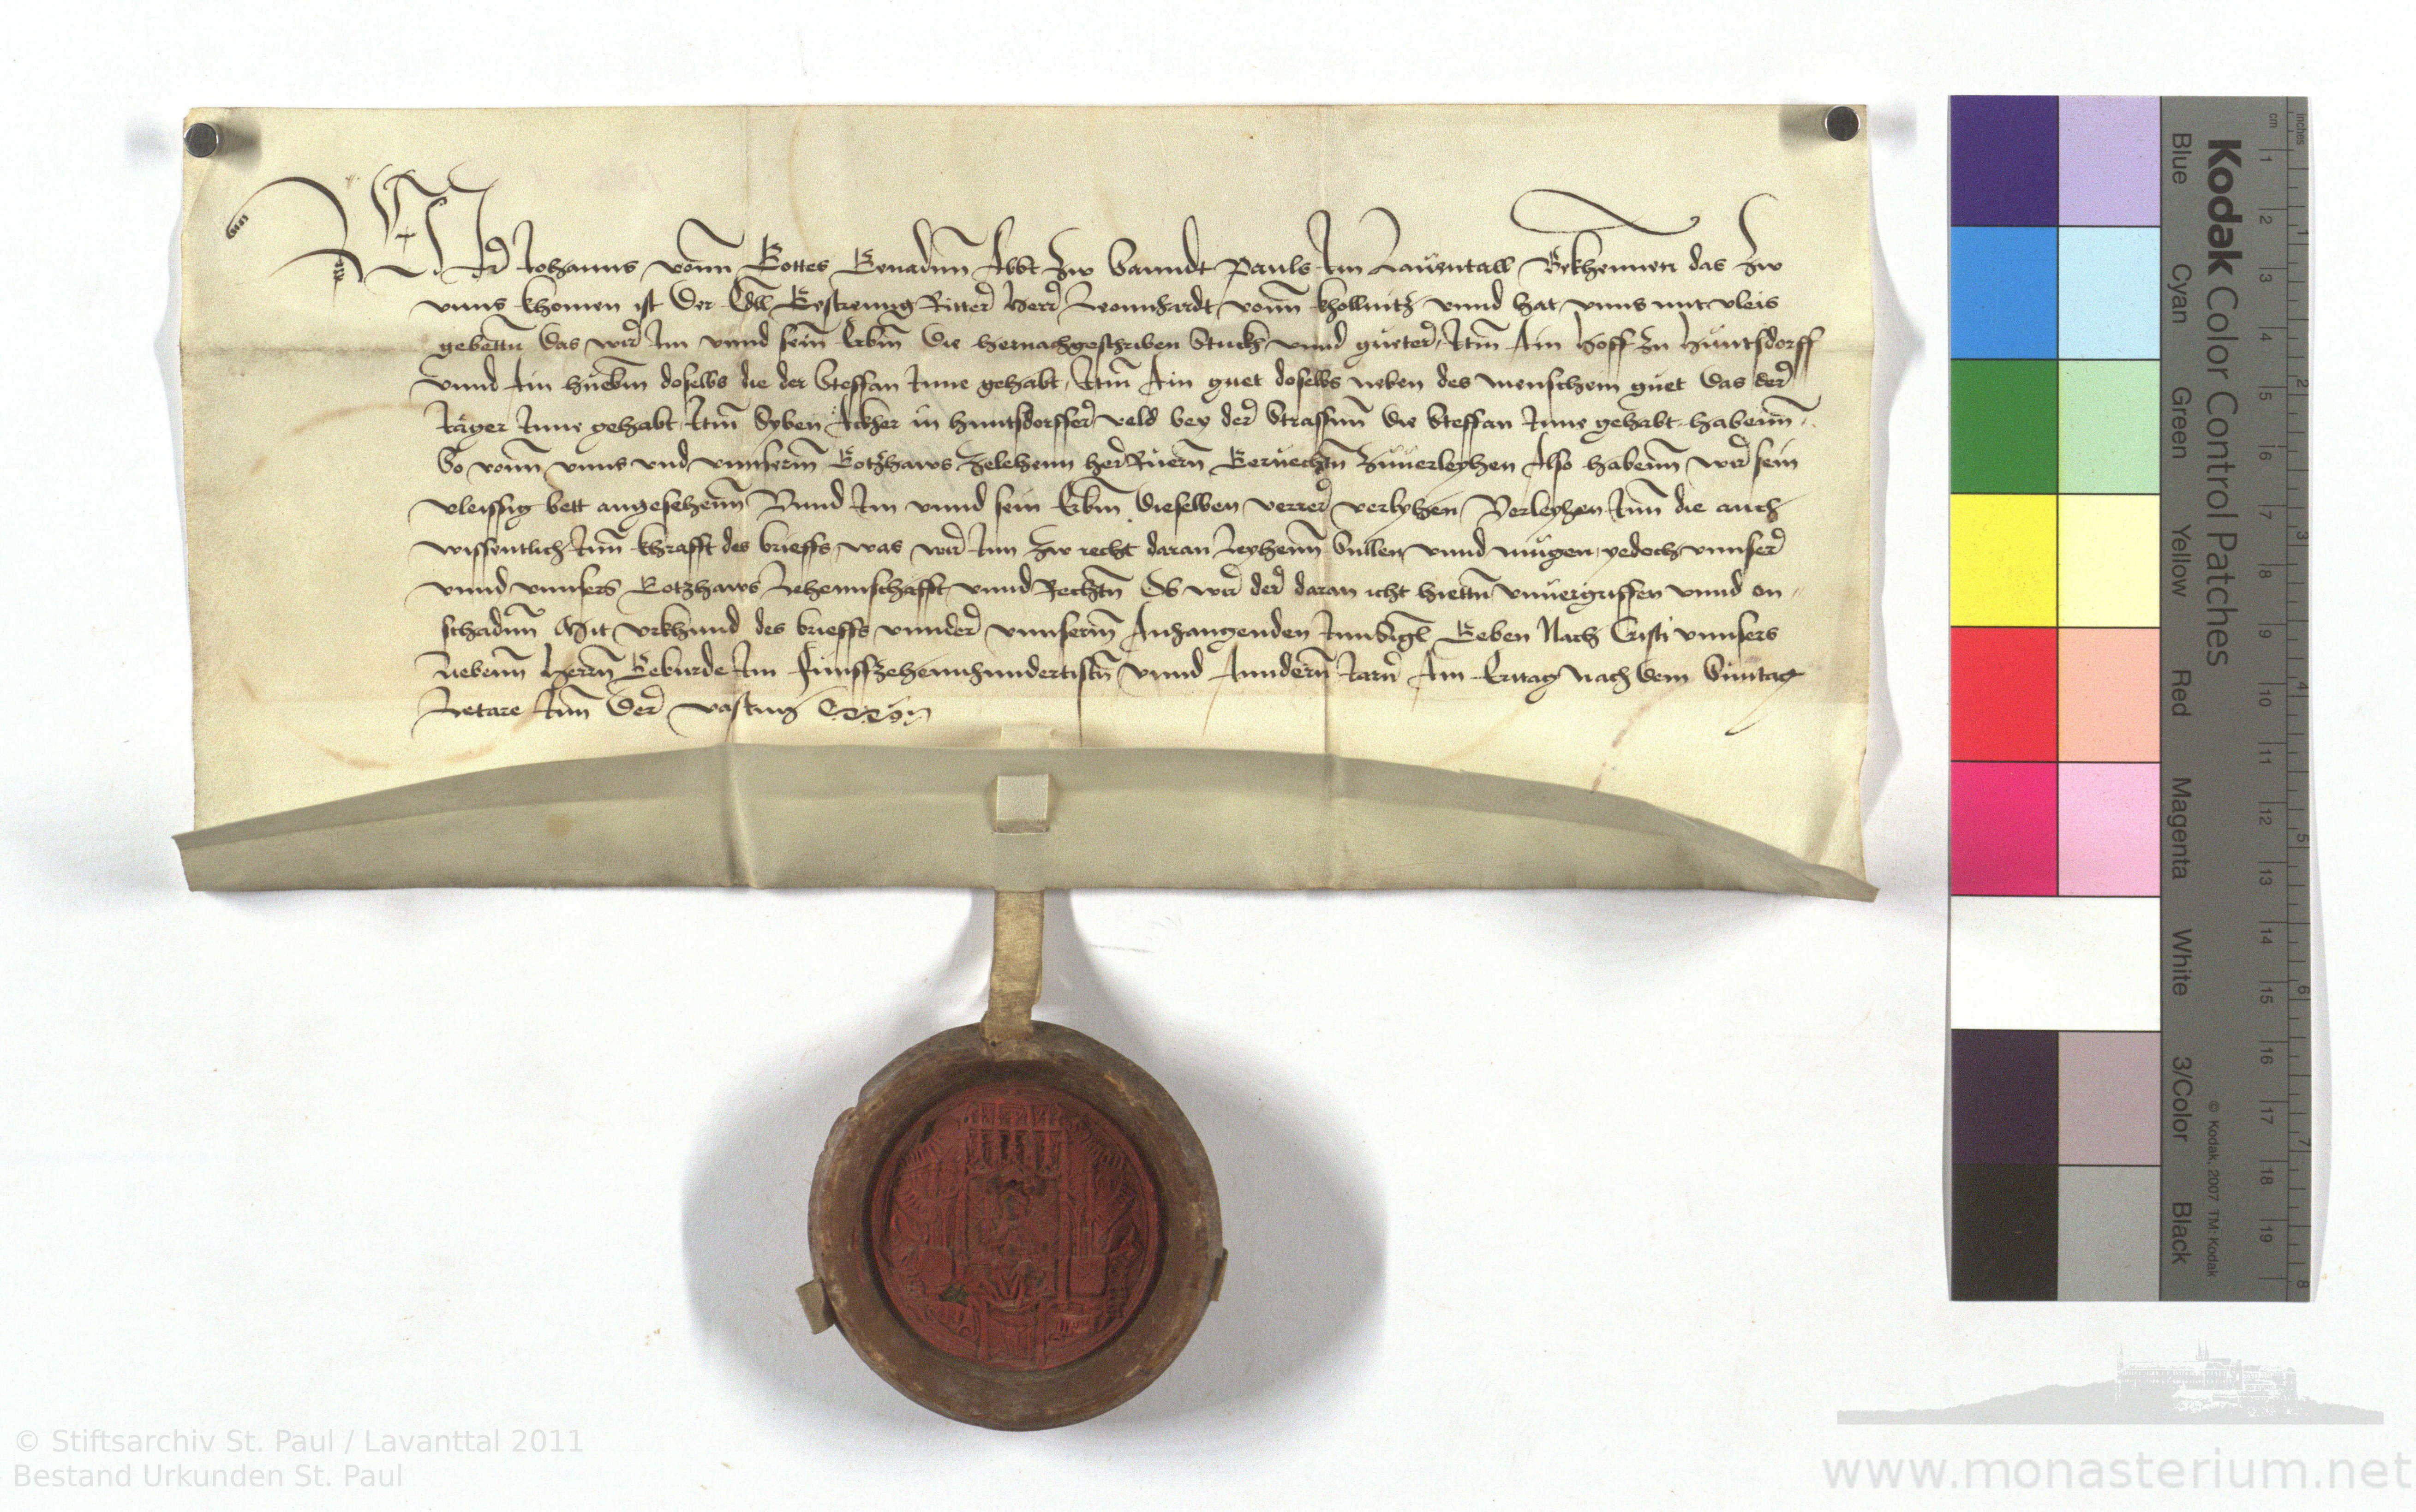 Wir Johanns vonn Gottes Genadnn Abbt zw Sanndt Pauls Im Lauenntall Bekhennen das zw
vnns khomen ist Der Edll Gestrenng Ritter Herr Leonnhardt vonn khollnitz vnnd hat vnns mit vleis
gebettn Das wir Im vnnd sein Erbm Die hernachgeschriben Stuckh vnnd gueter, Itm Ain Hoff zu Huntsdorff
Vnnd Ain hueben doselbs die der Steffan Inne gehabt, Itm Ain guet doselbs neben des menschem guet Das der
Jager Inne gehabt, Itm Syben Ackher in huntsdorffer veld bey der Strassnn Die Steffan Inne gehabt habenn
So vonn vnns vnd vnnserm Gotzhaws zelehenn Geruechtn zuuerleyhen Also habenn wir sein
vleissig bett angesehenn Vnnd Im vnnd sein Erbm Dieselben verrer verlyhen, Verleyhen Inn die auch
wissentlich Inn khrafft des brieffs, was wir Inn zw recht daran Leyhenn Sullen vnnd mugen, yedoch vnnser
vnnd vnnsers Gotzhaws Lehennschafft vnnd Rechtn Ob wir der daran icht hiettn vnuergriffen vnnd on
schadnn Mit vrkhund des brieffs vnnder vnnserm Anhangenden Innsigl Geben Nach Cristi vnnsers
Liebenn Herrn Geburde Im Funffzehennhundertistn vnnd Anndern Jarn Am Eritag Nach Dem Suntag
Letare Inn Der vastnn
Kodak Color Control Patches
Blue Cyan Green Yellow Red Magenta White 3/Color Black
© Kodak, 2007 TM: Kodak
cm 1 2 3 4 5 6 7 8 9 10 11 12 13 14 15 16 17 18 19
inches 1 2 3 4 5 6 7 8
© Stiftsarchiv St. Paul / Lavanttal 2011
Bestand Urkunden St. Paul
www.monasterium.net